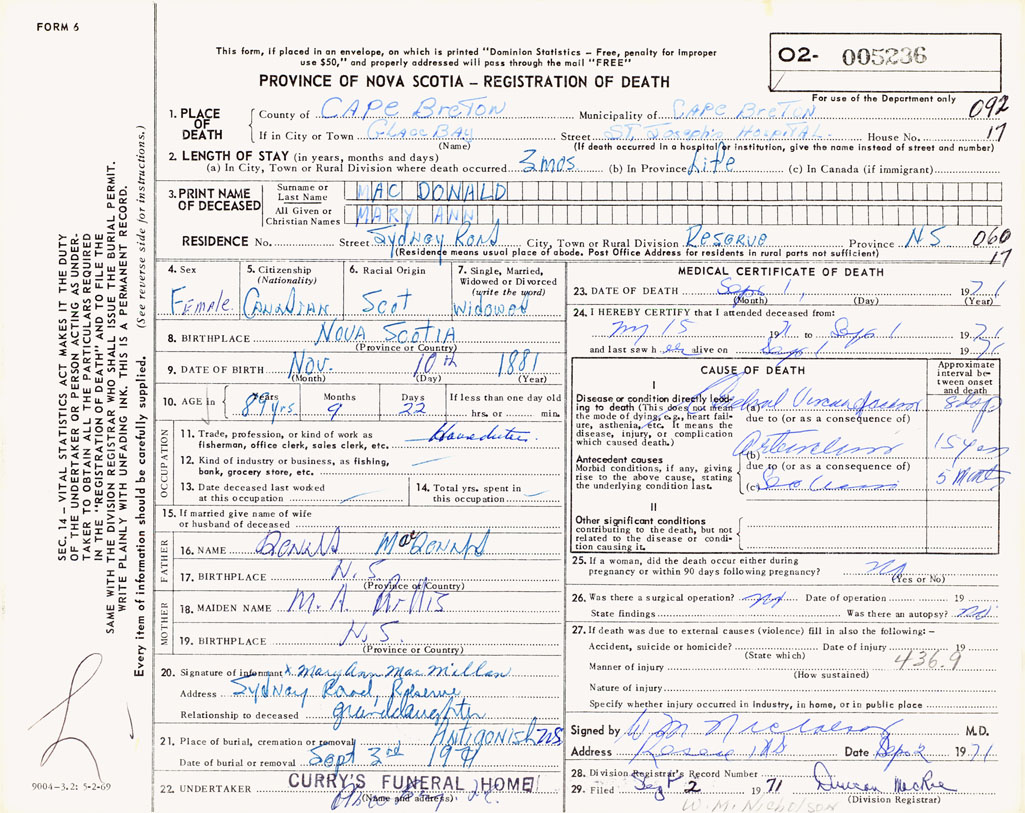 FORM 6
This form, if placed in an envelope, on which is printed "Dominion Statistics – Free, penalty for improper
use $50," and properly addressed will pass through the mail "FREE"
PROVINCE OF NOVA SCOTIA – REGISTRATION OF DEATH
02- 005236
For use of the Department only
092
17
1. PLACE OF DEATH
County of CAPE BreTON Municipality of CAPE BreTON
If in City or Town GLACE BAY Street ST. Joseph's HOSPITAL. House No.
(Name) (If death occurred in a hospital or institution, give the name instead of street and number)
2. LENGTH OF STAY (in years, months and days)
(a) In City, Town or Rural Division where death occurred 3 mos (b) In Province Life (c) In Canada (if immigrant)
3. PRINT NAME OF DECEASED
Surname or Last Name MAC DONALD
All Given or Christian Names MARY ANN
RESIDENCE No. Street Sydney Road City, Town or Rural Division Reserve Province NS 060
(Residence means usual place of abode. Post Office Address for residents in rural parts not sufficient) 17
4. Sex Female
5. Citizenship (Nationality) Canadian
6. Racial Origin Scot
7. Single, Married, Widowed or Divorced (write the word) Widowed
8. BIRTHPLACE NOVA SCOTIA
(Province or Country)
9. DATE OF BIRTH Nov. 10th 1881
(Month) (Day) (Year)
10. AGE in Years Months Days If less than one day old
89 yrs 9 22 hrs. or min.
OCCUPATION
11. Trade, profession, or kind of work as
fisherman, office clerk, sales clerk, etc. Housduties
12. Kind of industry or business, as fishing,
bank, grocery store, etc.
13. Date deceased last worked
at this occupation
14. Total yrs. spent in
this occupation
15. If married give name of wife
or husband of deceased
FATHER
16. NAME Donald MacDonald
17. BIRTHPLACE N.S.
(Province or Country)
MOTHER
18. MAIDEN NAME M. A.
19. BIRTHPLACE N.S.
(Province or Country)
20. Signature of informant x Mary Ann MacMillan
Address Sydney Road, Reserve
Relationship to deceased granddaughter
21. Place of burial, cremation or removal ANTIGONISH NS
Date of burial or removal Sept 3rd 1971
22. UNDERTAKER CURRY'S FUNERAL HOME
(Name and address)
MEDICAL CERTIFICATE OF DEATH
23. DATE OF DEATH Sept 1 1971
(Month) (Day) (Year)
24. I HEREBY CERTIFY that I attended deceased from:
My 15 1971 to Sept 1 1971
and last saw h er alive on Sept 1 1971
CAUSE OF DEATH
Approximate interval between onset and death
I
Disease or condition directly leading to death (This does not mean the mode of dying, e.g., heart failure, asthenia, etc. It means the disease, injury, or complication which caused death.)
(a) 8 days
due to (or as a consequence of)
Antecedent causes
Morbid conditions, if any, giving rise to the above cause, stating the underlying condition last.
(b) 15 years
due to (or as a consequence of)
(c) 5 Months
II
Other significant conditions
contributing to the death, but not related to the disease or condition causing it.
25. If a woman, did the death occur either during
pregnancy or within 90 days following pregnancy? No
(Yes or No)
26. Was there a surgical operation? No Date of operation 19
State findings Was there an autopsy? No
27. If death was due to external causes (violence) fill in also the following: –
Accident, suicide or homicide? Date of injury 19
(State which) 436.9
Manner of injury
(How sustained)
Nature of injury
Specify whether injury occurred in industry, in home, or in public place
Signed by W M Nicholson M.D.
Address Reserve NS Date Sept 2 1971
28. Division Registrar's Record Number
29. Filed Sept 2 1971 Duncan MacRae
(Division Registrar)
W.M. NICHOLSON
SEC. 14 – VITAL STATISTICS ACT MAKES IT THE DUTY
OF THE UNDERTAKER OR PERSON ACTING AS UNDER-
TAKER TO OBTAIN THE PARTICULARS REQUIRED
IN THE "REGISTRATION OF DEATH" AND TO FILE THE
SAME WITH THE DIVISION REGISTRAR WHO SHALL ISSUE THE BURIAL PERMIT.
WRITE PLAINLY WITH UNFADING INK. THIS IS A PERMANENT RECORD.
Every item of information should be carefully supplied. (See reverse side for instructions.)
9004-3.2: 5-2-69